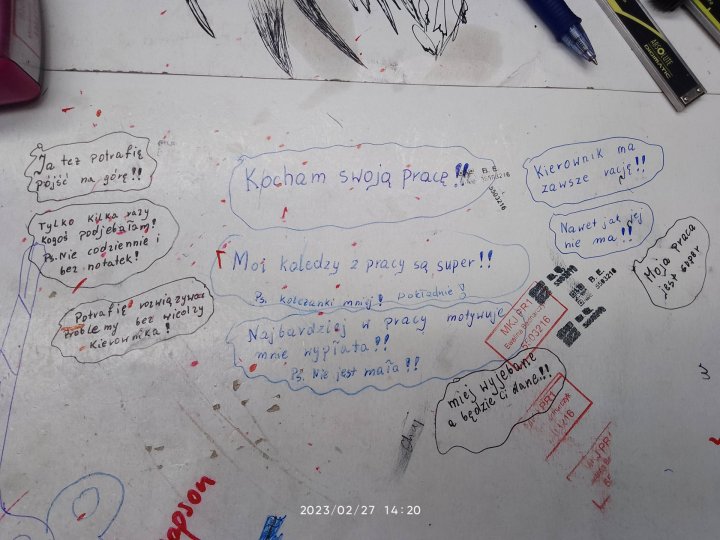 Ja też potrafię
pójść na górę!!
Tylko kilka razy
kogoś podjebałam!
Ps. Nie codziennie i
bez notatek!
Potrafię rozwiązywać
problemy bez wiedzy
kierownika!
Kocham swoją pracę!!
B. E.
5503216
Moi koledzy z pracy są super!!
Ps. koleżanki mniej! Dokładnie!
Najbardziej w pracy motywuje
mnie wypłata!!
Ps. Nie jest mała!!
Kierownik ma
zawsze rację!!
Nawet jak jej
nie ma!!
Moja praca
jest super
B. E.
5503216
MKJ PR1
Ewelina
5503216
miej wyjebane
a będzie ci dane!!
PR1
MKJ PR1
ABSOLUTE
DIGIMATIC
2023/02/27 14:20